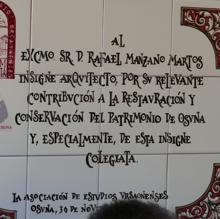 AL
EXCMO SR. D. RAFAEL MANZANO MARTOS
INSIGNE ARQUITECTO, POR SU RELEVANTE
CONTRIBUCIÓN A LA RESTAURACIÓN Y
CONSERVACIÓN DEL PATRIMONIO DE OSUNA
Y, ESPECIALMENTE, DE ESTA INSIGNE
COLEGIATA.
LA ASOCIACIÓN DE ESTUDIOS URSAONENSES
OSUNA, 30 DE